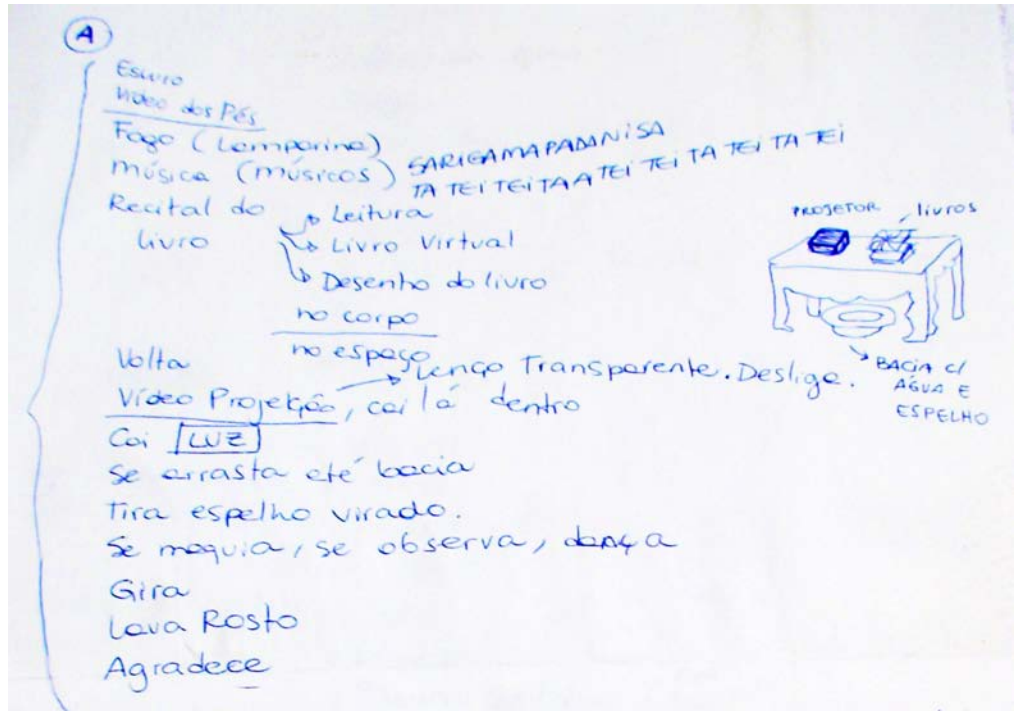 A
Escuro
Vídeo dos Pés
Fogo (Lamparina)
música (músicos) SARIGAMAPADANISA
TA TEI TEI TA A TEI TEI TA TEI TA TEI
Recital do livro
Leitura
Livro Virtual
Desenho do livro
no corpo
no espaço
PROJETOR
livros
BACIA C/
ÁGUA E
ESPELHO
Volta
Vídeo Projeção, cai lá dentro
Lenço Transparente. Desliga.
Cai LUZ
Se arrasta até bacia
Tira espelho virado.
Se maquia, se observa, dança
Gira
Lava Rosto
Agradece